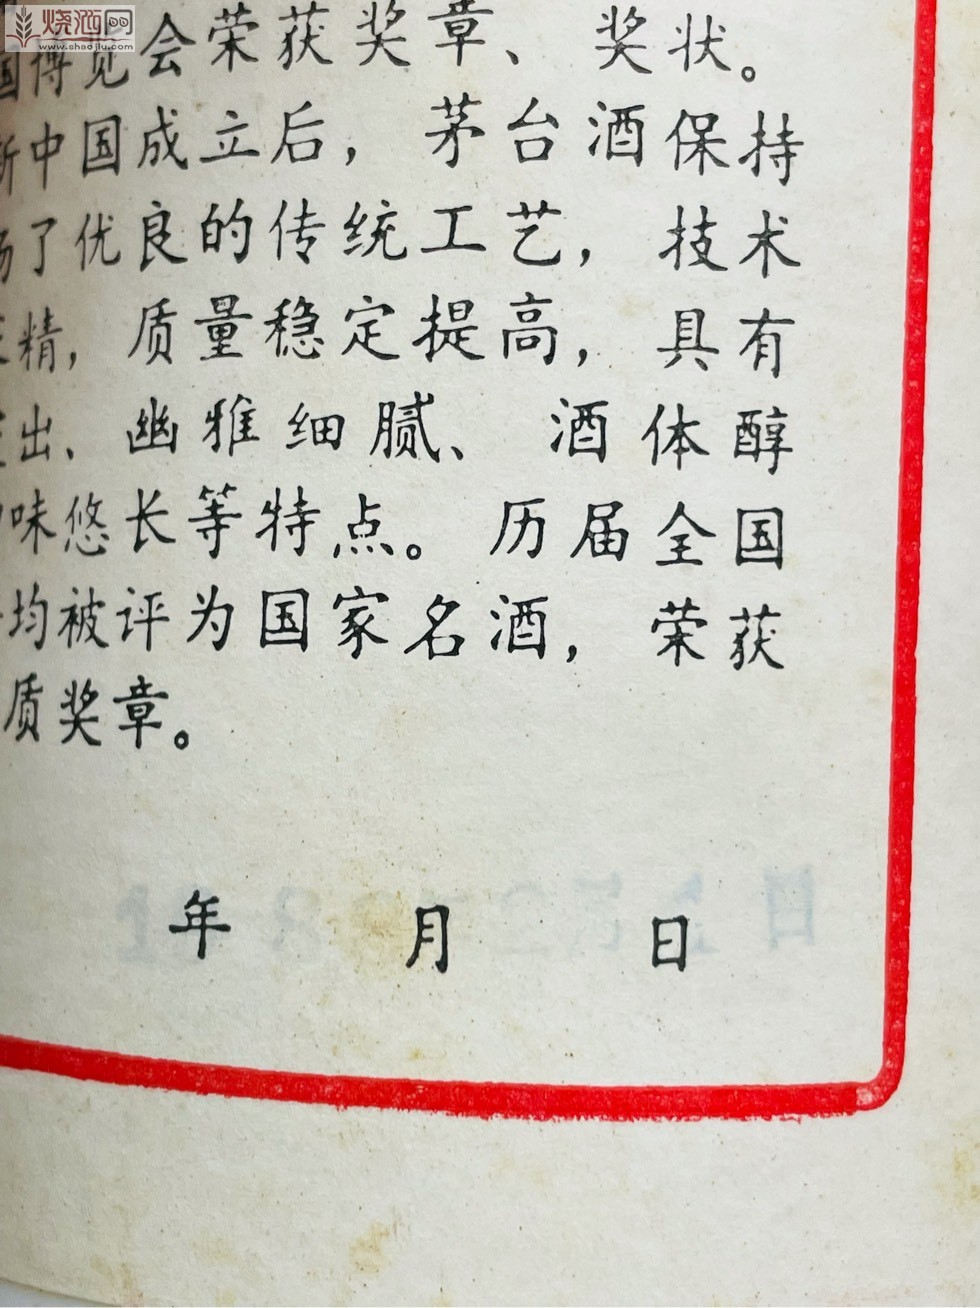 烧酒网
www.shaojiu.com
国博览会荣获奖章、奖状。
新中国成立后，茅台酒保持
扬了优良的传统工艺，技术
精，质量稳定提高，具有
出、幽雅细腻、酒体醇
味悠长等特点。历届全国
均被评为国家名酒，荣获
质奖章。
年 月 日